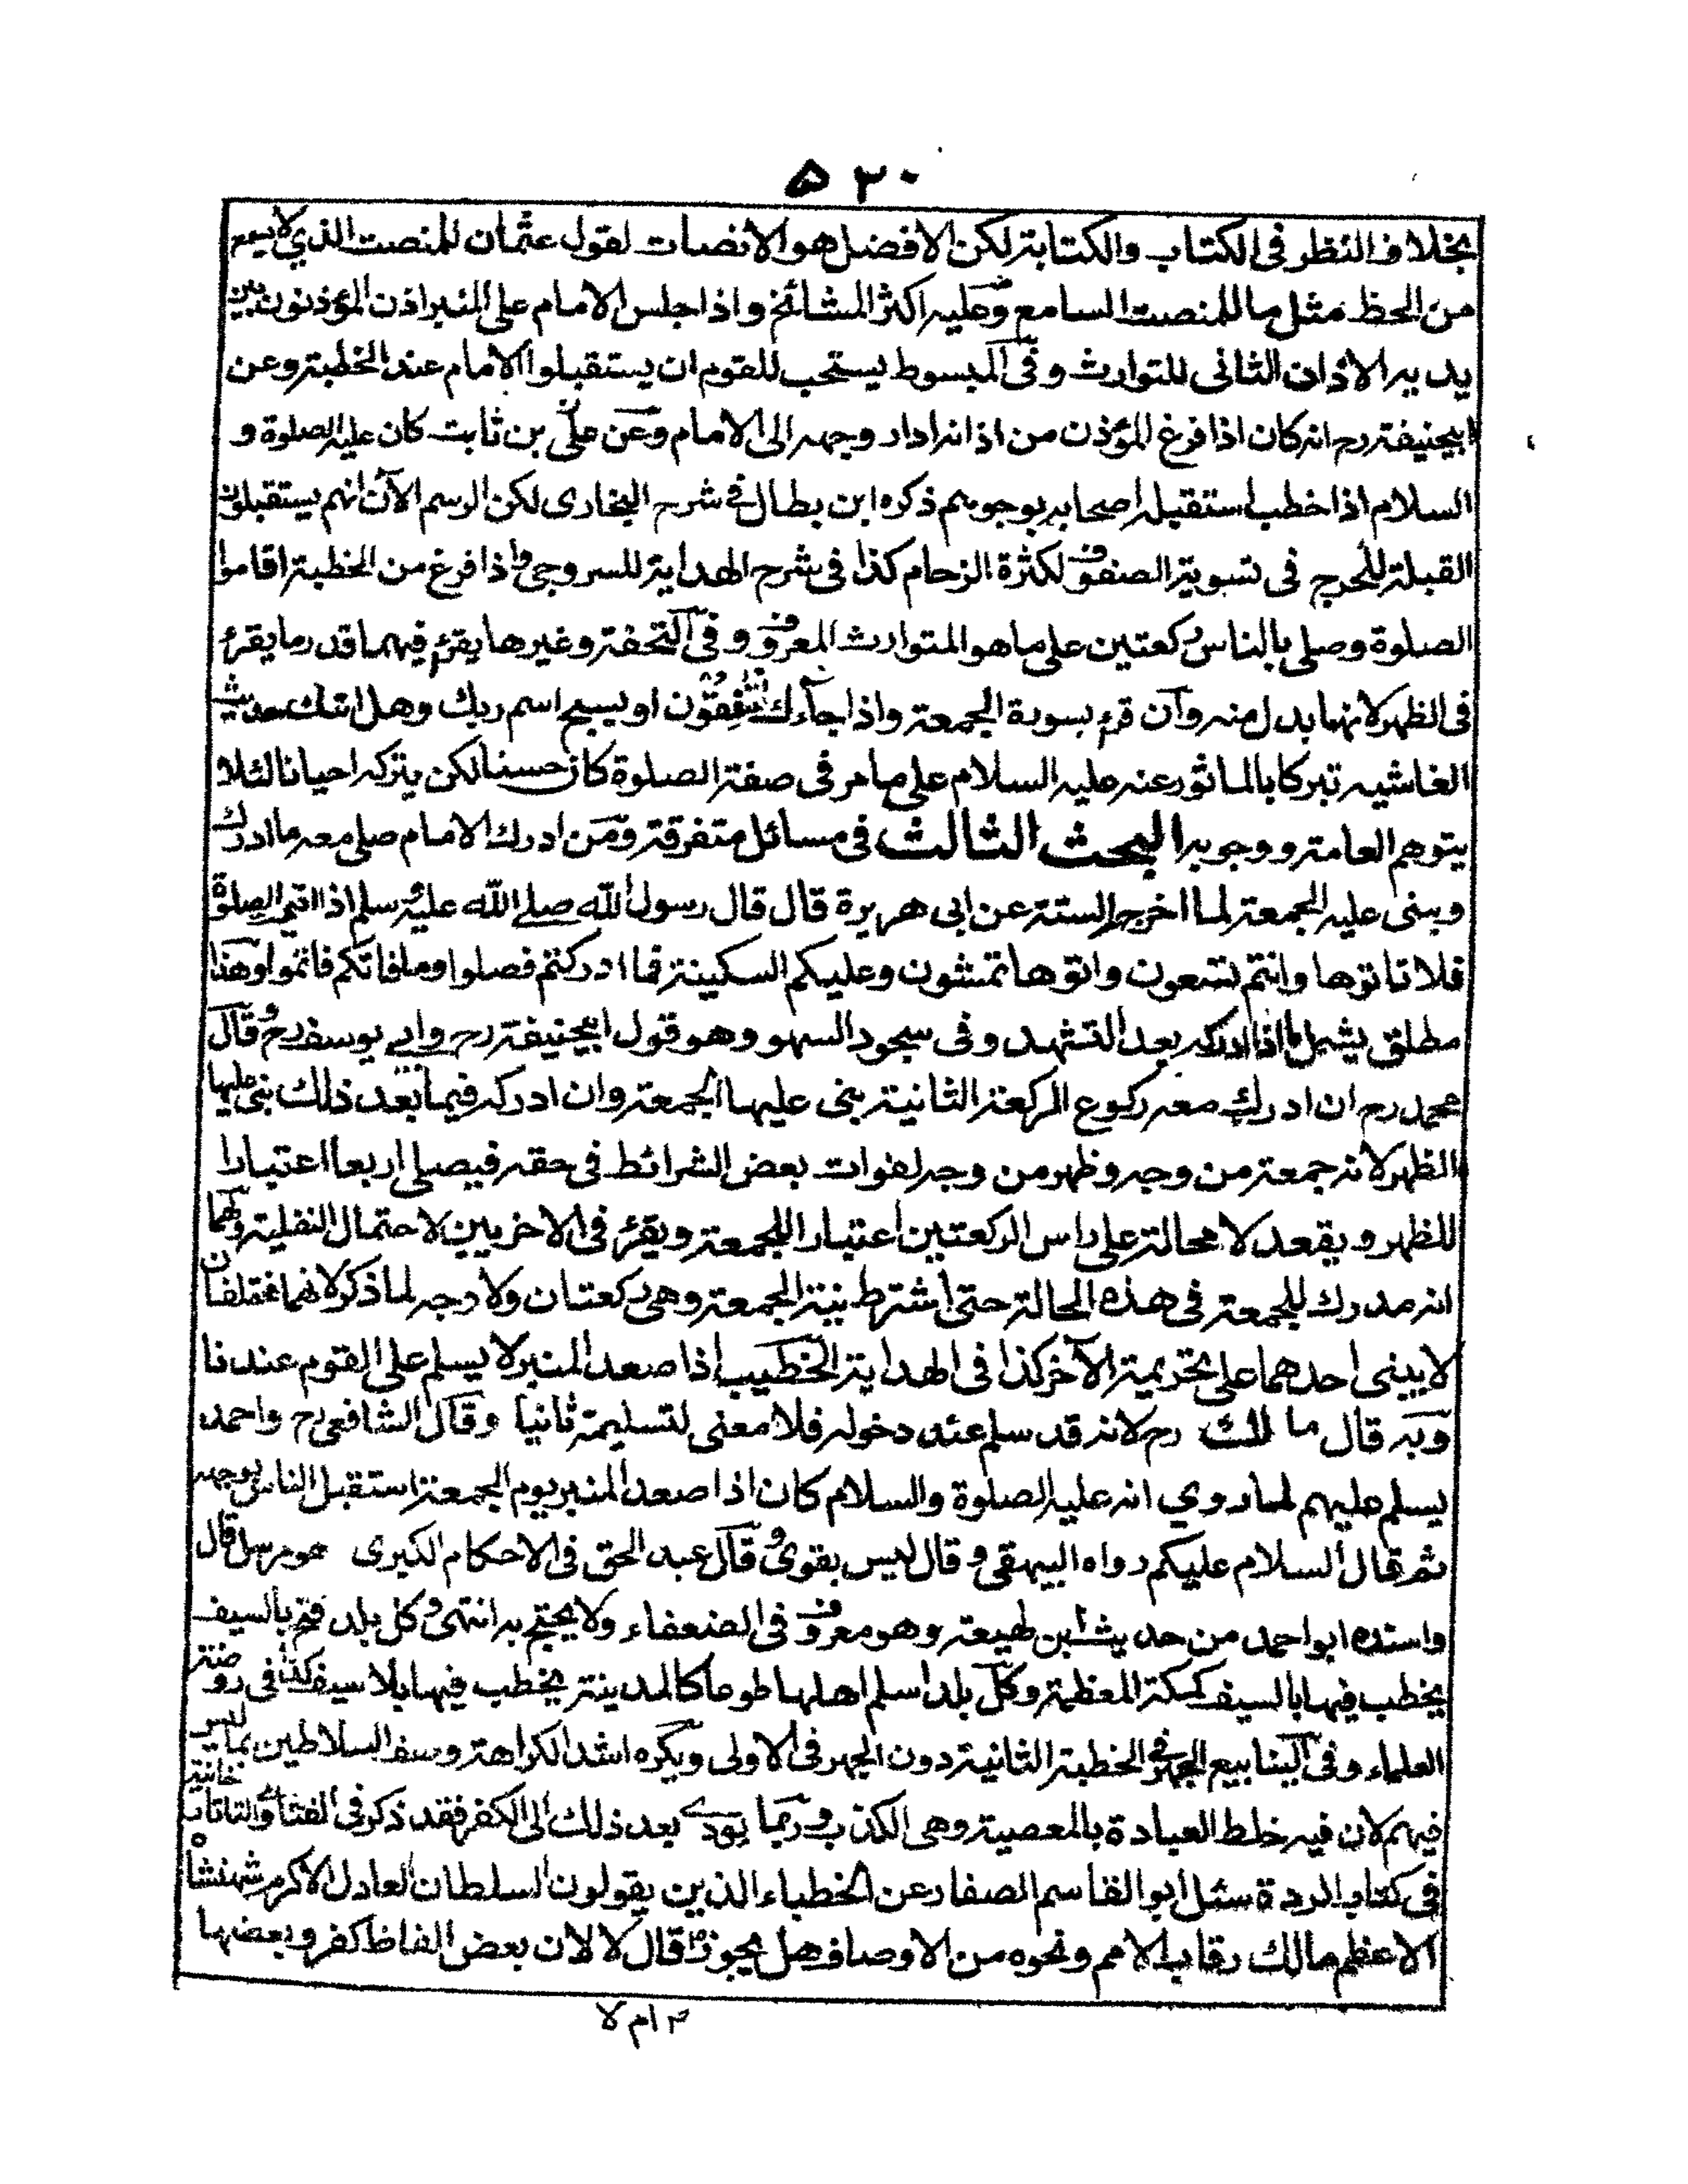 ۵۲۰
بخلاف النظر فى الكتاب والكتابة لكن الافضل هو الانصات لقول عثمان للمنصت الذي لا يسمع
من الحظ مثل ما للمنصت السامع وعليه اكثر المشائخ واذا جلس الامام على المنبر اذن المؤذنون بين
يديه الاذان الثانى للتوارث وفى المبسوط يستحب للقوم ان يستقبلوا الامام عند الخطبة وعن
ابيحنيفة رح انه كان اذا فرغ المؤذن من اذانه ادار وجهه الى الامام وعن على بن ثابت كان عليه الصلوة و
السلام اذا خطب استقبله اصحابه بوجوههم ذكره ابن بطال فى شرح البخارى لكن الرسم الآن انهم يستقبلون
القبلة للحرج فى تسوية الصفوف لكثرة الزحام كذا فى شرح الهداية للسروجى واذا فرغ من الخطبة اقاموا
الصلوة وصلى بالناس ركعتين على ما هو المتوارث المعروف وفى التحفة وغيرها يقرء فيهما قدر ما يقرء
فى الظهر لانهما بدل منه وان قرء بسورة الجمعة واذا جاءك المنفقون او بسبح اسم ربك وهل اتىك حديث
الغاشيه تبركا بالماثور عنه عليه السلام على ما مر فى صفة الصلوة كان حسنا لكن يتركه احيانا لئلا
يتوهم العامة ووجوبه البحث الثالث فى مسائل متفرقة ومن ادرك الامام صلى معه ما ادرك
وبنى عليه الجمعة لما اخرج الستة عن ابى هريرة قال قال رسول الله صلى الله عليه وسلم اذا اقيم الصلوة
فلا تاتوها وانتم تسعون واتوها تمشون وعليكم السكينة فما ادركتم فصلوا وما فاتكم فاتموا وهذا
مطلق يشمل ما اذا ادركه بعد التشهد وفى سجود السهو وهو قول ابيحنيفة رح وابى يوسف رح وقال
محمد رح ان ادرك معه ركوع الركعة الثانية بنى عليها الجمعة وان ادركه فيما بعد ذلك بنى عليها
الظهر لانه جمعة من وجه وظهر من وجه لفوات بعض الشرائط فى حقه فيصلى اربعا اعتبارا
للظهر ويقعد لا محالة على راس الركعتين اعتبارا للجمعة ويقرء فى الاخريين لاحتمال النفلية ولهما
انه مدرك للجمعة فى هذه الحالة حتى اشترط نية الجمعة وهى ركعتان ولا وجه لما ذكر لانهما مختلفان
لا يبنى احدهما على تحريمة الآخر كذا فى الهداية الخطيب اذا صعد المنبر لا يسلم على القوم عندنا
وبه قال مالك رح لانه قد سلم عند دخوله فلا معنى لتسليمة ثانيا وقال الشافعى رح واحمد
يسلم عليهم لما روي انه عليه الصلوة والسلام كان اذا صعد المنبر يوم الجمعة استقبل الناس بوجهه
ثم قال السلام عليكم رواه البيهقى وقال ليس بقوى وقال عبد الحق فى الاحكام الكبرى هو مرسل قال
واسنده ابو احمد من حديث ابن لهيعة وهو معروف فى الضعفاء ولا يحتج به انتهى وكل بلد فتح بالسيف
يخطب فيها بالسيف كمكة المعظمة وكل بلد اسلم اهلها طوعا كالمدينة يخطب فيها بلا سيف كذا فى روضة
العلماء وفى الينابيع الجهر فى الخطبة الثانية دون الجهر فى الاولى ويكره اشد الكراهة وصف السلاطين بما ليس
فيهم لان فيه خلط العبادة بالمعصية وهى الكذب وربما يودى بعد ذلك الى الكفر فقد ذكر فى الفتاوى التاتارخانية
فى كتاب الردة سئل ابو القاسم الصفار عن الخطباء الذين يقولون السلطان العادل الاكرم شهنشاه
الاعظم مالك رقاب الامم ونحوه من الاوصاف هل يجوز قال لا لان بعض الفاظ كفر وبعضها
ام لا